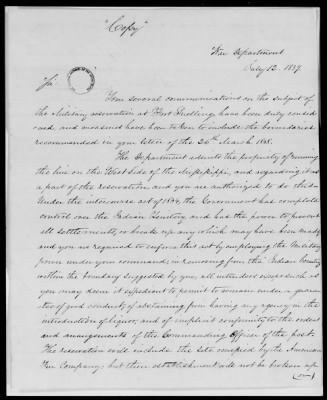 "Copy"
War Department
July 12. 1839.
Sir,
Your several communications on the subject of
the Military reservation at Fort Snelling have been duly consid
ered, and measures have been taken to include the boundaries
recommended in your letter of the 26th March 1838.
The Department admits the propriety of running
the line on the West side of the Mississippi, and regarding it as
a part of the reservation and you are authorized to do this.
Under the intercourse act of 1834, the Government has complete
control over the Indian Country and has the power to prevent
all settlements, or break up any which may have been made
and you are required to enforce that act by employing the Military
power under your command, in removing from the Indian Country
within the boundary suggested by you, all intruders except such as
you may deem it expedient to permit to remain under a guaran
tee of good conduct, of abstaining from having any agency in the
introduction of liquor, and of implicit conformity to the orders
and arrangements of the Commanding Officer of the post.
The reservation will include the site occupied by the American
Fur Company, but their establishment will not be broken up